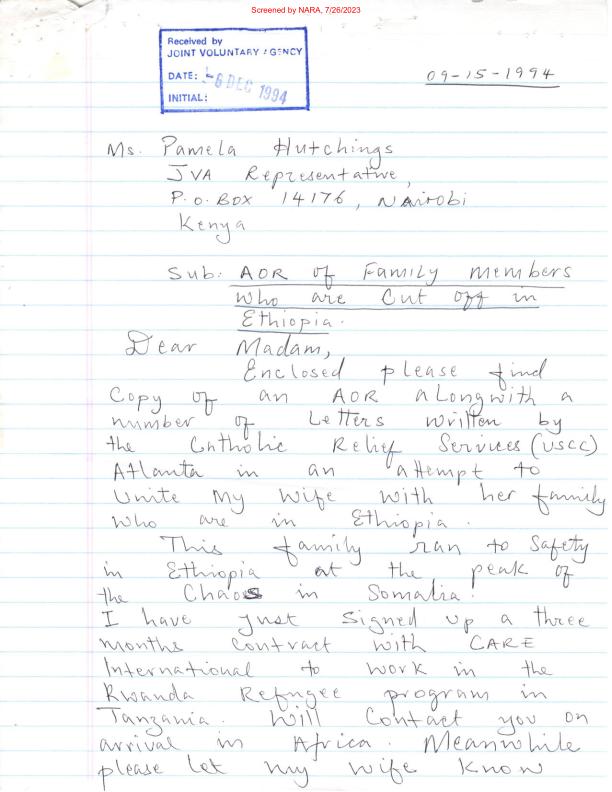 Screened by NARA, 7/26/2023
Received by
JOINT VOLUNTARY AGENCY
DATE: -6 DEC 1994
INITIAL:
09-15-1994
Ms. Pamela Hutchings
JVA Representative,
P.O. BOX 14176, Nairobi
Kenya
Sub: AOR of Family members
who are Cut off in
Ethiopia.
Dear Madam,
Enclosed please find
Copy of an AOR alongwith a
number of Letters written by
the Catholic Relief Services (USCC)
Atlanta in an attempt to
Unite My wife with her family
who are in Ethiopia.
This family ran to Safety
in Ethiopia at the peak of
the Chaos in Somalia.
I have just signed up a three
months contract with CARE
International to work in the
Rwanda Refugee program in
Tanzania. Will Contact you on
arrival in Africa. Meanwhile
please let my wife know